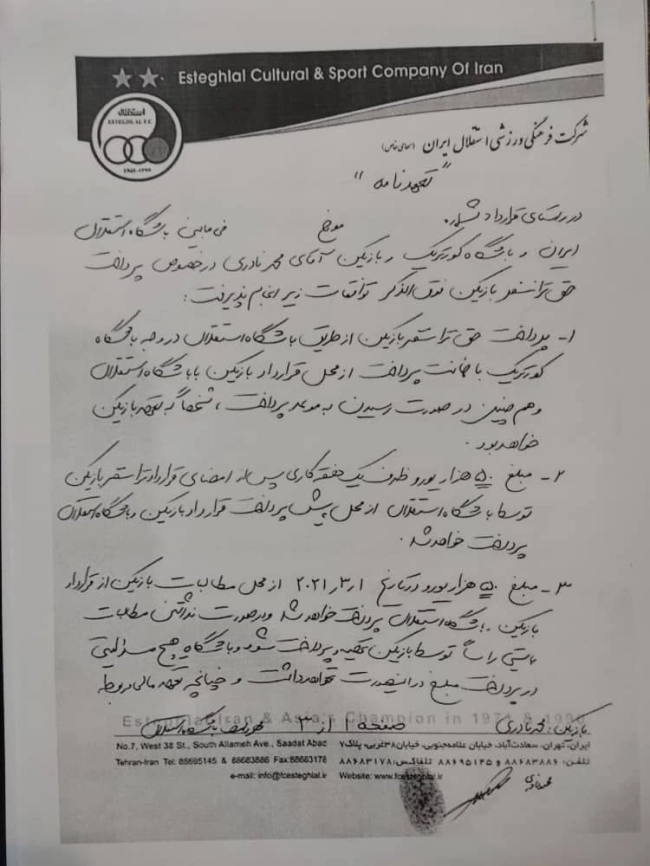 Esteghlal Cultural & Sport Company Of Iran
استقلال
ESTEGHLAL F.C
1945-1990
شرکت فرهنگی ورزشی استقلال ایران (سهامی خاص)
"تعهدنامه"
در راستای قرارداد شماره مورخ فی مابین باشگاه استقلال
ایران و باشگاه کورتریک و بازیکن آقای محمد نادری در خصوص پرداخت
حق ترانسفر بازیکن فوق الذکر توافقات زیر انجام پذیرفت:
۱- پرداخت حق ترانسفر بازیکن از طریق باشگاه استقلال در وجه باشگاه
کورتریک با ضمانت پرداخت از محل قرارداد بازیکن با باشگاه استقلال
و هم چنین در صورت رسیدن به موعد پرداخت، شخصاً به تعهد بازیکن
خواهد بود.
۲- مبلغ ۵۰ هزار یورو ظرف یک هفته کاری پس از امضای قرارداد ترانسفر بازیکن
توسط باشگاه استقلال از محل پیش پرداخت قرارداد بازیکن و باشگاه استقلال
پرداخت خواهد شد.
۳- مبلغ ۵۰ هزار یورو در تاریخ ۲۰۲۱٫۳٫۱ از محل مطالبات بازیکن از قرارداد
بازیکن. باشگاه استقلال پرداخت خواهد شد و در صورت نداشتن مطالبات
بایستی راساً توسط بازیکن تهیه و پرداخت شود و باشگاه هیچ مسئولیتی
در پرداخت مبلغ در اینصورت نخواهد داشت و چنانچه تعهد مالی مربوطه
Esteghlal Iran & Asia's Champion in 1971 & 1990
بازیکن: محمد نادری صفحه ۱ از ۳ باشگاه استقلال
No.7, West 38 St., South Allameh Ave., Saadat Abad ایران، تهران، سعادت‌آباد، خیابان علامه‌جنوبی، خیابان ۳۸غربی، پلاک۷
Tehran-Iran Tel: 88695145 & 88683886 Fax:88683178 تلفن: ۸۸۶۸۳۸۸۶ و ۸۸۶۹۵۱۴۵ تلفاکس: ۸۸۶۸۳۱۷۸
e-mail: info@fcesteghlal.ir Website: www.fcesteghlal.ir
محمد نادری